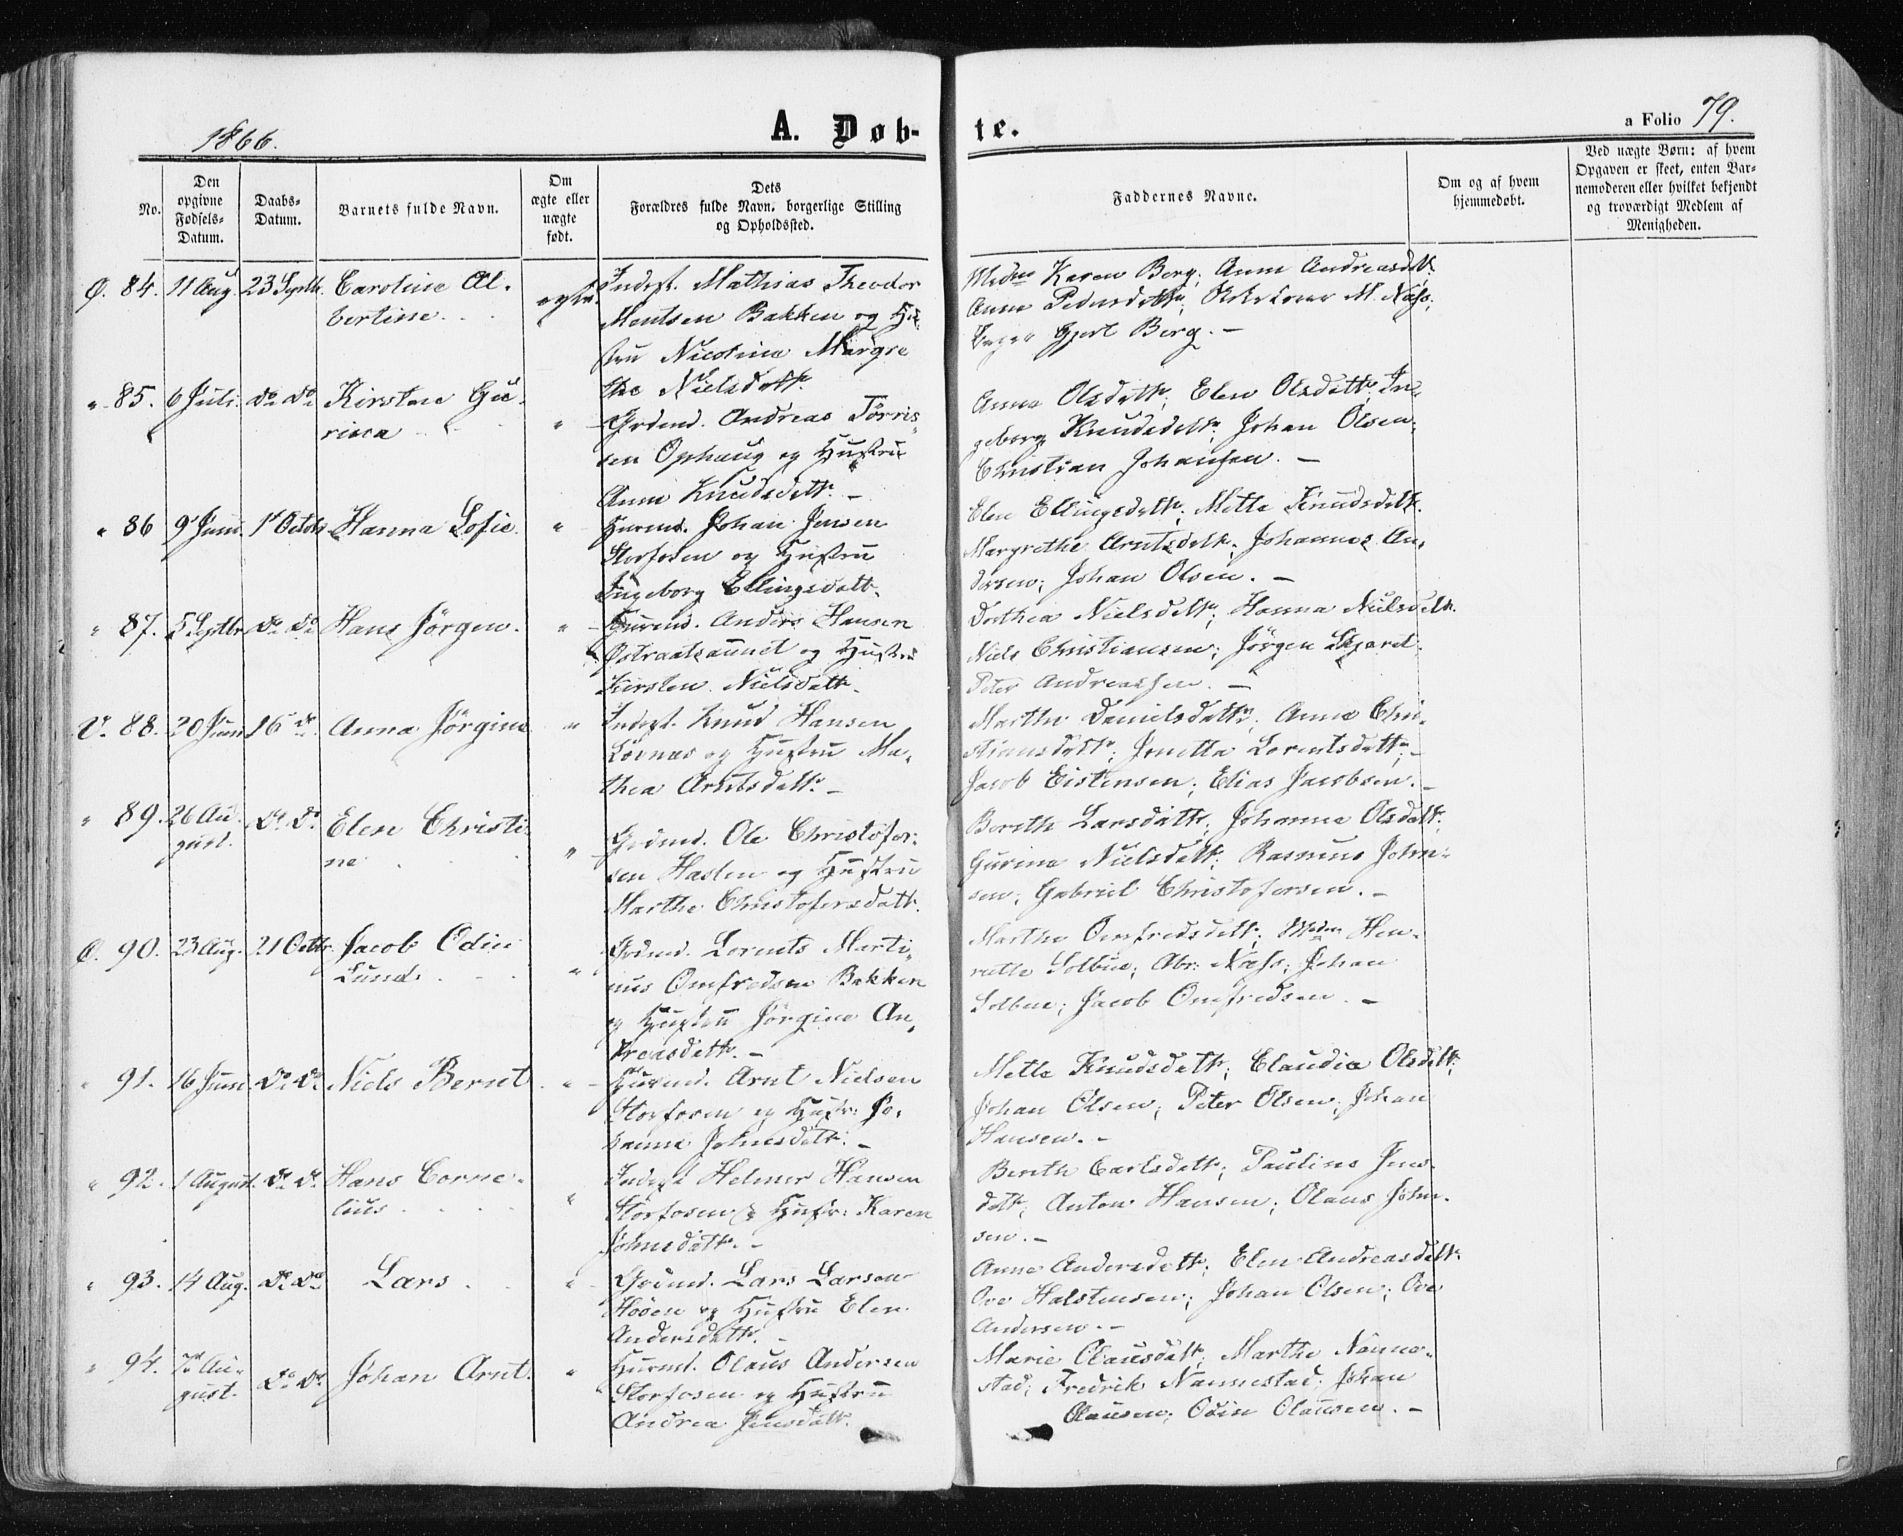 1866.
A. Døb-
te.
a Folio 79.
No.
Den opgivne Fødsels-Datum.
Daabs-Datum.
Barnets fulde Navn.
Om ægte eller uægte født.
Dets Forældres fulde Navn, borgerlige Stilling og Opholdssted.
Faddernes Navne.
Om og af hvem hjemmedøbt.
Ved uægte Børn: af hvem Opgaven er skeet, enten Barnemoderen eller hvilket bekjendt og troværdigt Medlem af Menigheden.
Ø. 84. 11 Aug. 23 Septb. Caroline Al-
bertine.
ægte.
Inderst. Mathias Theodor
Mentsen Bakken og Hu-
stru Nicolina Margre
the Nielsdatt.
Mdme Karen Berg; Anne Andreasdatt.
Anne Pedersdatter; M. Næss;
Gjert Berg. —
" 85. 6 Juli. do do Kirsten Gu-
rina
"
Grdmd. Andreas Tørris-
sen Ophaug og Hustru
Anne Knudsdatt. —
Anne Olsdatt; Elen Olsdatt; In-
geborg Knudsdatt; Johan Olsen;
Christian Johansen. —
" 86 9 Juni. 1 Octob. Hanna Sofie.
"
Husmd. Johan Jensen
Storfosen og Hustru
Ingeborg Ellingsdatt.
Elen Ellingsdatt; Mette Knudsdatt.
Margrethe Arntsdatt; Johannes An-
dersen; Johan Olsen. —
" 87. 5 Septbr. do do Hans Jørgen.
"
Husmd. Anders Hansen
Østraatsaunet og Hustru
Kirsten Nielsdatt.
Dorthea Nielsdatt; Hanna Nielsdatt.
Niels Christiansen; Jørgen
Peter Andreassen. —
V. 88. 20 Juni 16 do. Anna Jørgine
"
Inderst. Knud Hansen
og Hustru Ma-
thea Arntsdatt. —
Marthe Danielsdatt; Anne Chri-
stiansdatt; Jonetta Lorentsdatt; —
Jacob Eistensen; Elias Jacobsen. —
" 89. 26 Au-
gust. do do. Elen Christi-
ne
"
Grdmd. Ole Christofer-
sen Hasten og Hustru
Marthe Christofersdatt.
Bereth Larsdatt; Johanna Olsdatt;
Gurina Nielsdatt; Rasmus John-
sen; Gabriel Christofersen. —
Ø. 90. 23 Aug. 21 Octbr. Jacob Odin
Lund.
"
Grdmd. Lorents Marti-
nus Omfredsen Bakken
og Hustru Jørgine An-
dreasdatt. —
Marthe Omfredsdatt; Mdme Hen-
riette Solbue; Abr: Næss; Johan
Solbue; Jacob Omfredsen. —
" 91. 16 Juni do do. Niels Bernt.
"
Husmd. Arnt Nielsen
Storfosen og Hustr: Jo-
hanna Johnsdatt. —
Mette Knudsdatt; Claudia Olsdatt;
Johan Olsen; Peter Olsen; Johan
Hansen. —
" 92. 1 August. do do. Hans Corne-
lius
"
Inderst Helmer Hansen
Storfosen & Hustr: Karen
Johnsdatt. —
Bereth Carlsdatt; Pauline Jens-
datt; Anton Hansen; Olaus John-
sen. —
" 93. 14 Aug. do do Lars.
"
Grdmd. Lars Larsen
Høien og Hustru Elen
Andersdatt. —
Anne Andersdatt; Elen Andreasdatt.
Ove Halstensen; Johan Olsen; Ove
Andersen. —
" 94. 7de Au-
gust. do do. Johan Arnt.
"
Husmd. Olaus Andersen
Storfosen og Hustru
Andrea Jensdatt.
Marie Olausdatt; Marthe Nanne-
stad; Fredrik Nannestad; Johan
Olausen; Odin Olausen. —